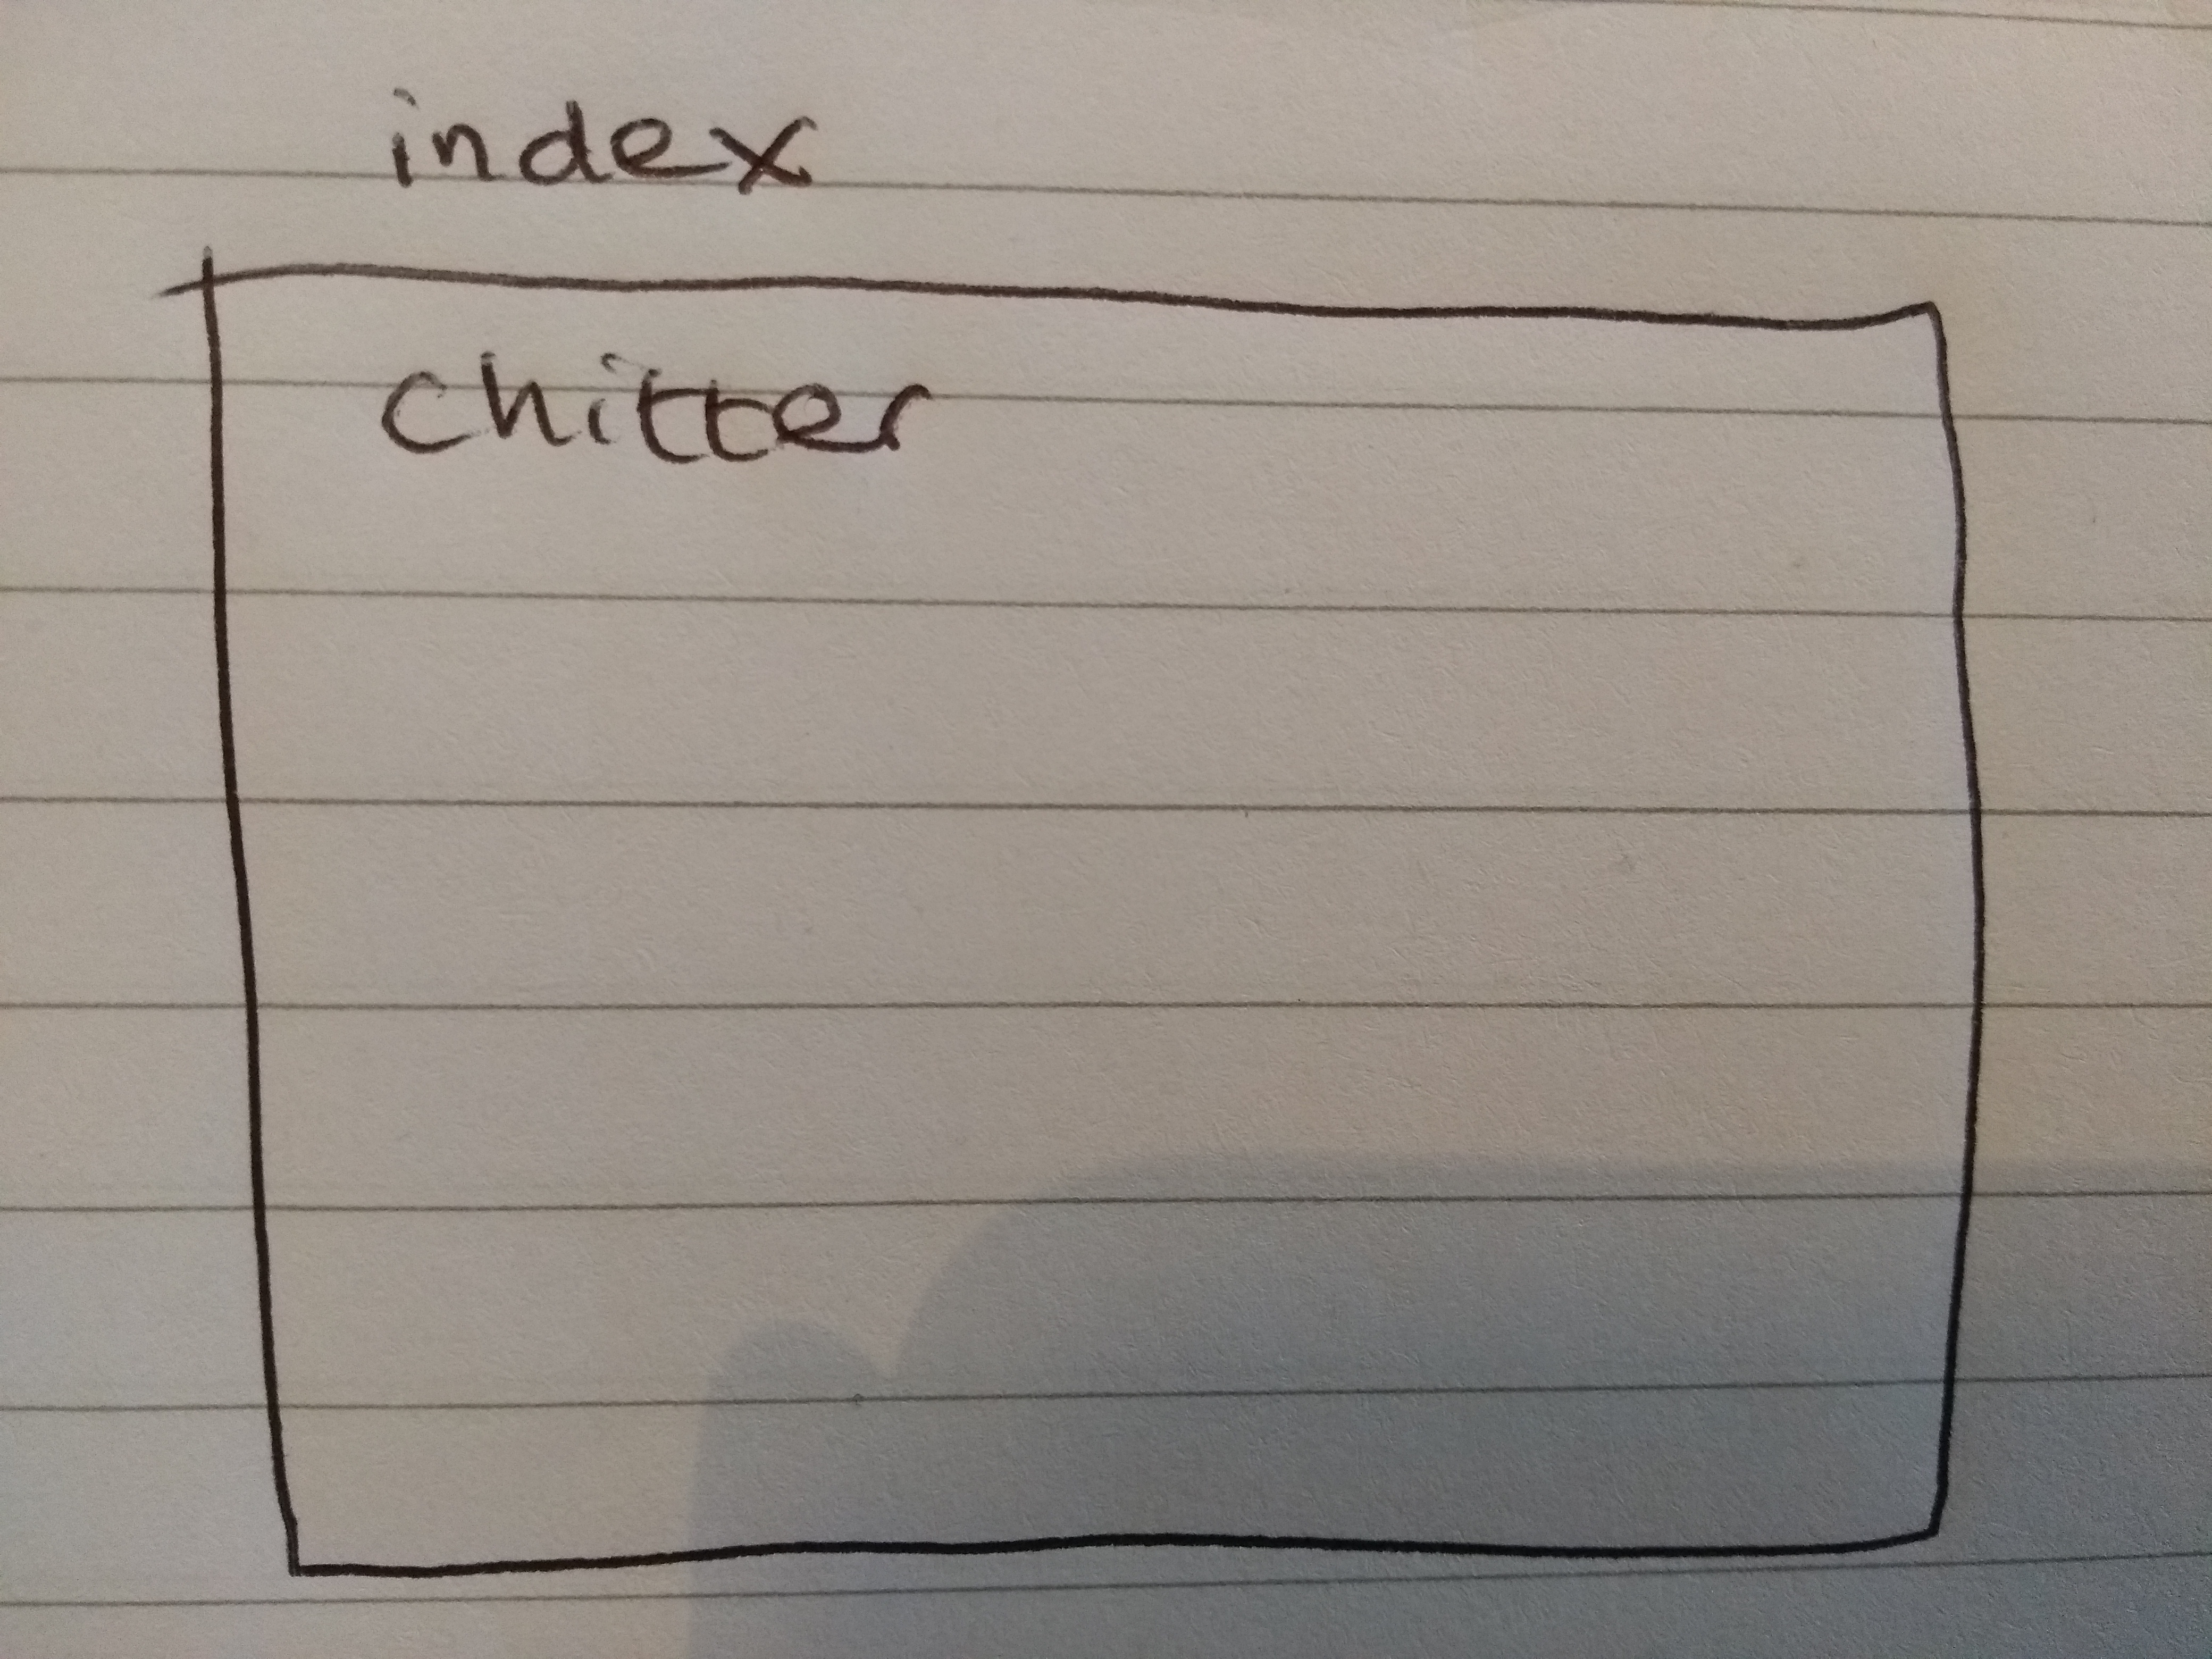 index
Chitter